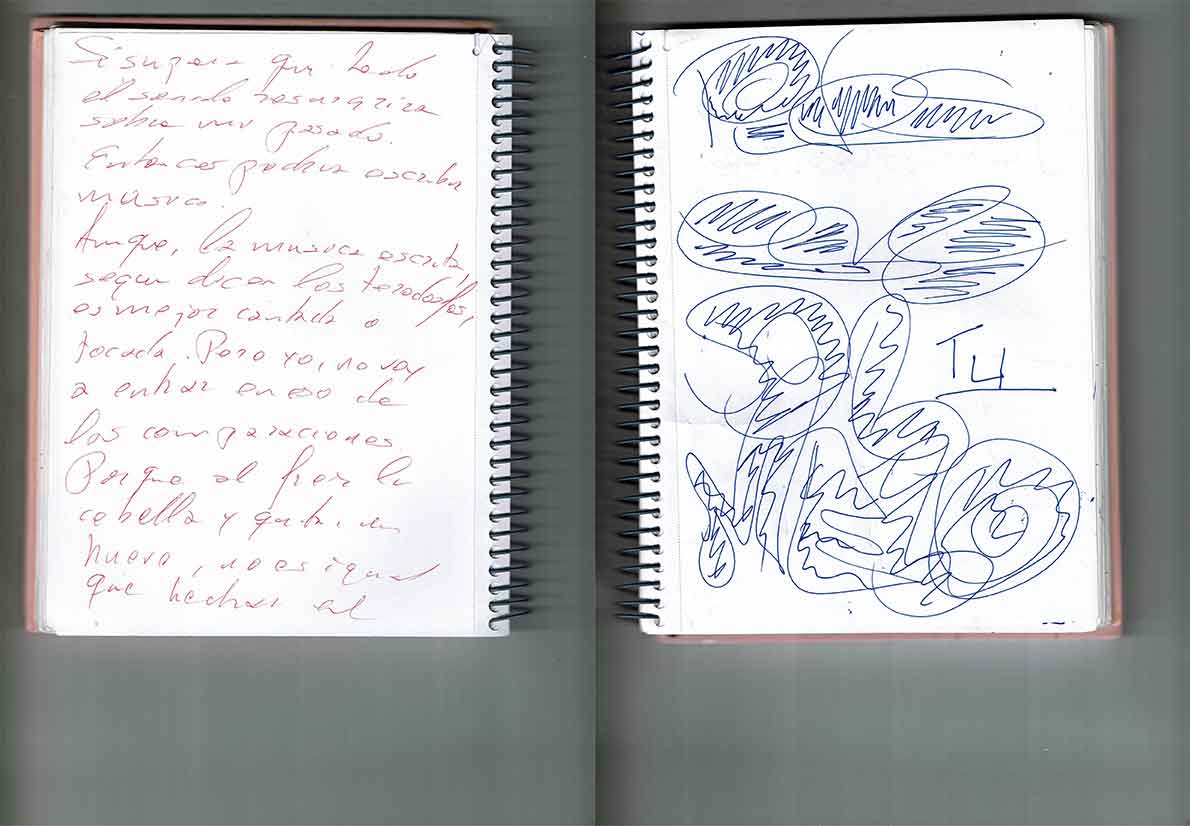 Si supera que todo
el sonido
sobre mi pasado.
Entonces podria escribir
musica.
Aunque, la musica escrita,
segun dicen los
es mejor cantada o
tocada. Pero yo, no voy
a entrar en eso de
las comparaciones.
Porque al freir la
cebolla y
huevo, no es igual
que hechar el
TU